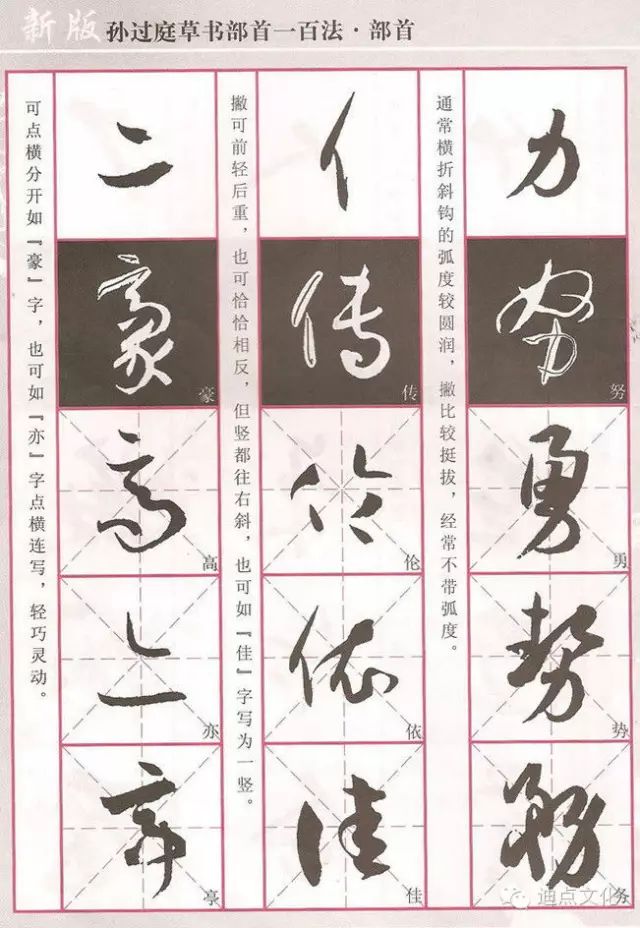 新版 孙过庭草书部首一百法·部首
力
努
勇
势
务
通常横折斜钩的弧度较圆润，撇比较挺拔，经常不带弧度。
亻
传
伦
依
佳
撇可前轻后重，也可恰恰相反，但竖都往右斜，也可如『佳』字写为一竖。
亠
豪
高
亦
亭
可点横分开如『豪』字，也可如『亦』字点横连写，轻巧灵动。
迪点文化